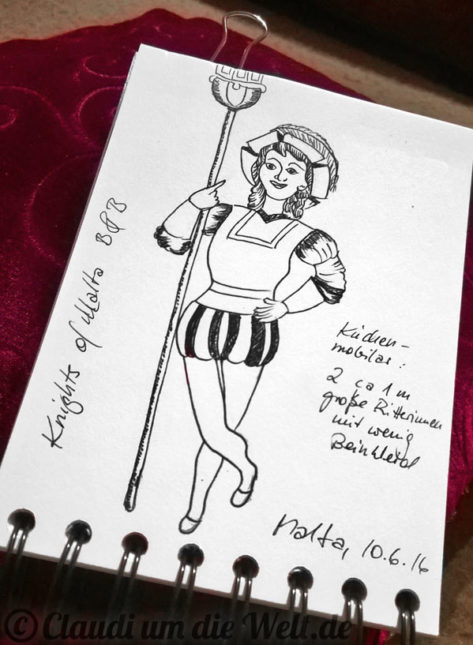 Knights of Malta B&B
Küchen-
mobilar:
2 ca 1 m
große Ritterinnen
mit wenig
Beinkleid
Malta, 10.6.16
© Claudi um die Welt.de